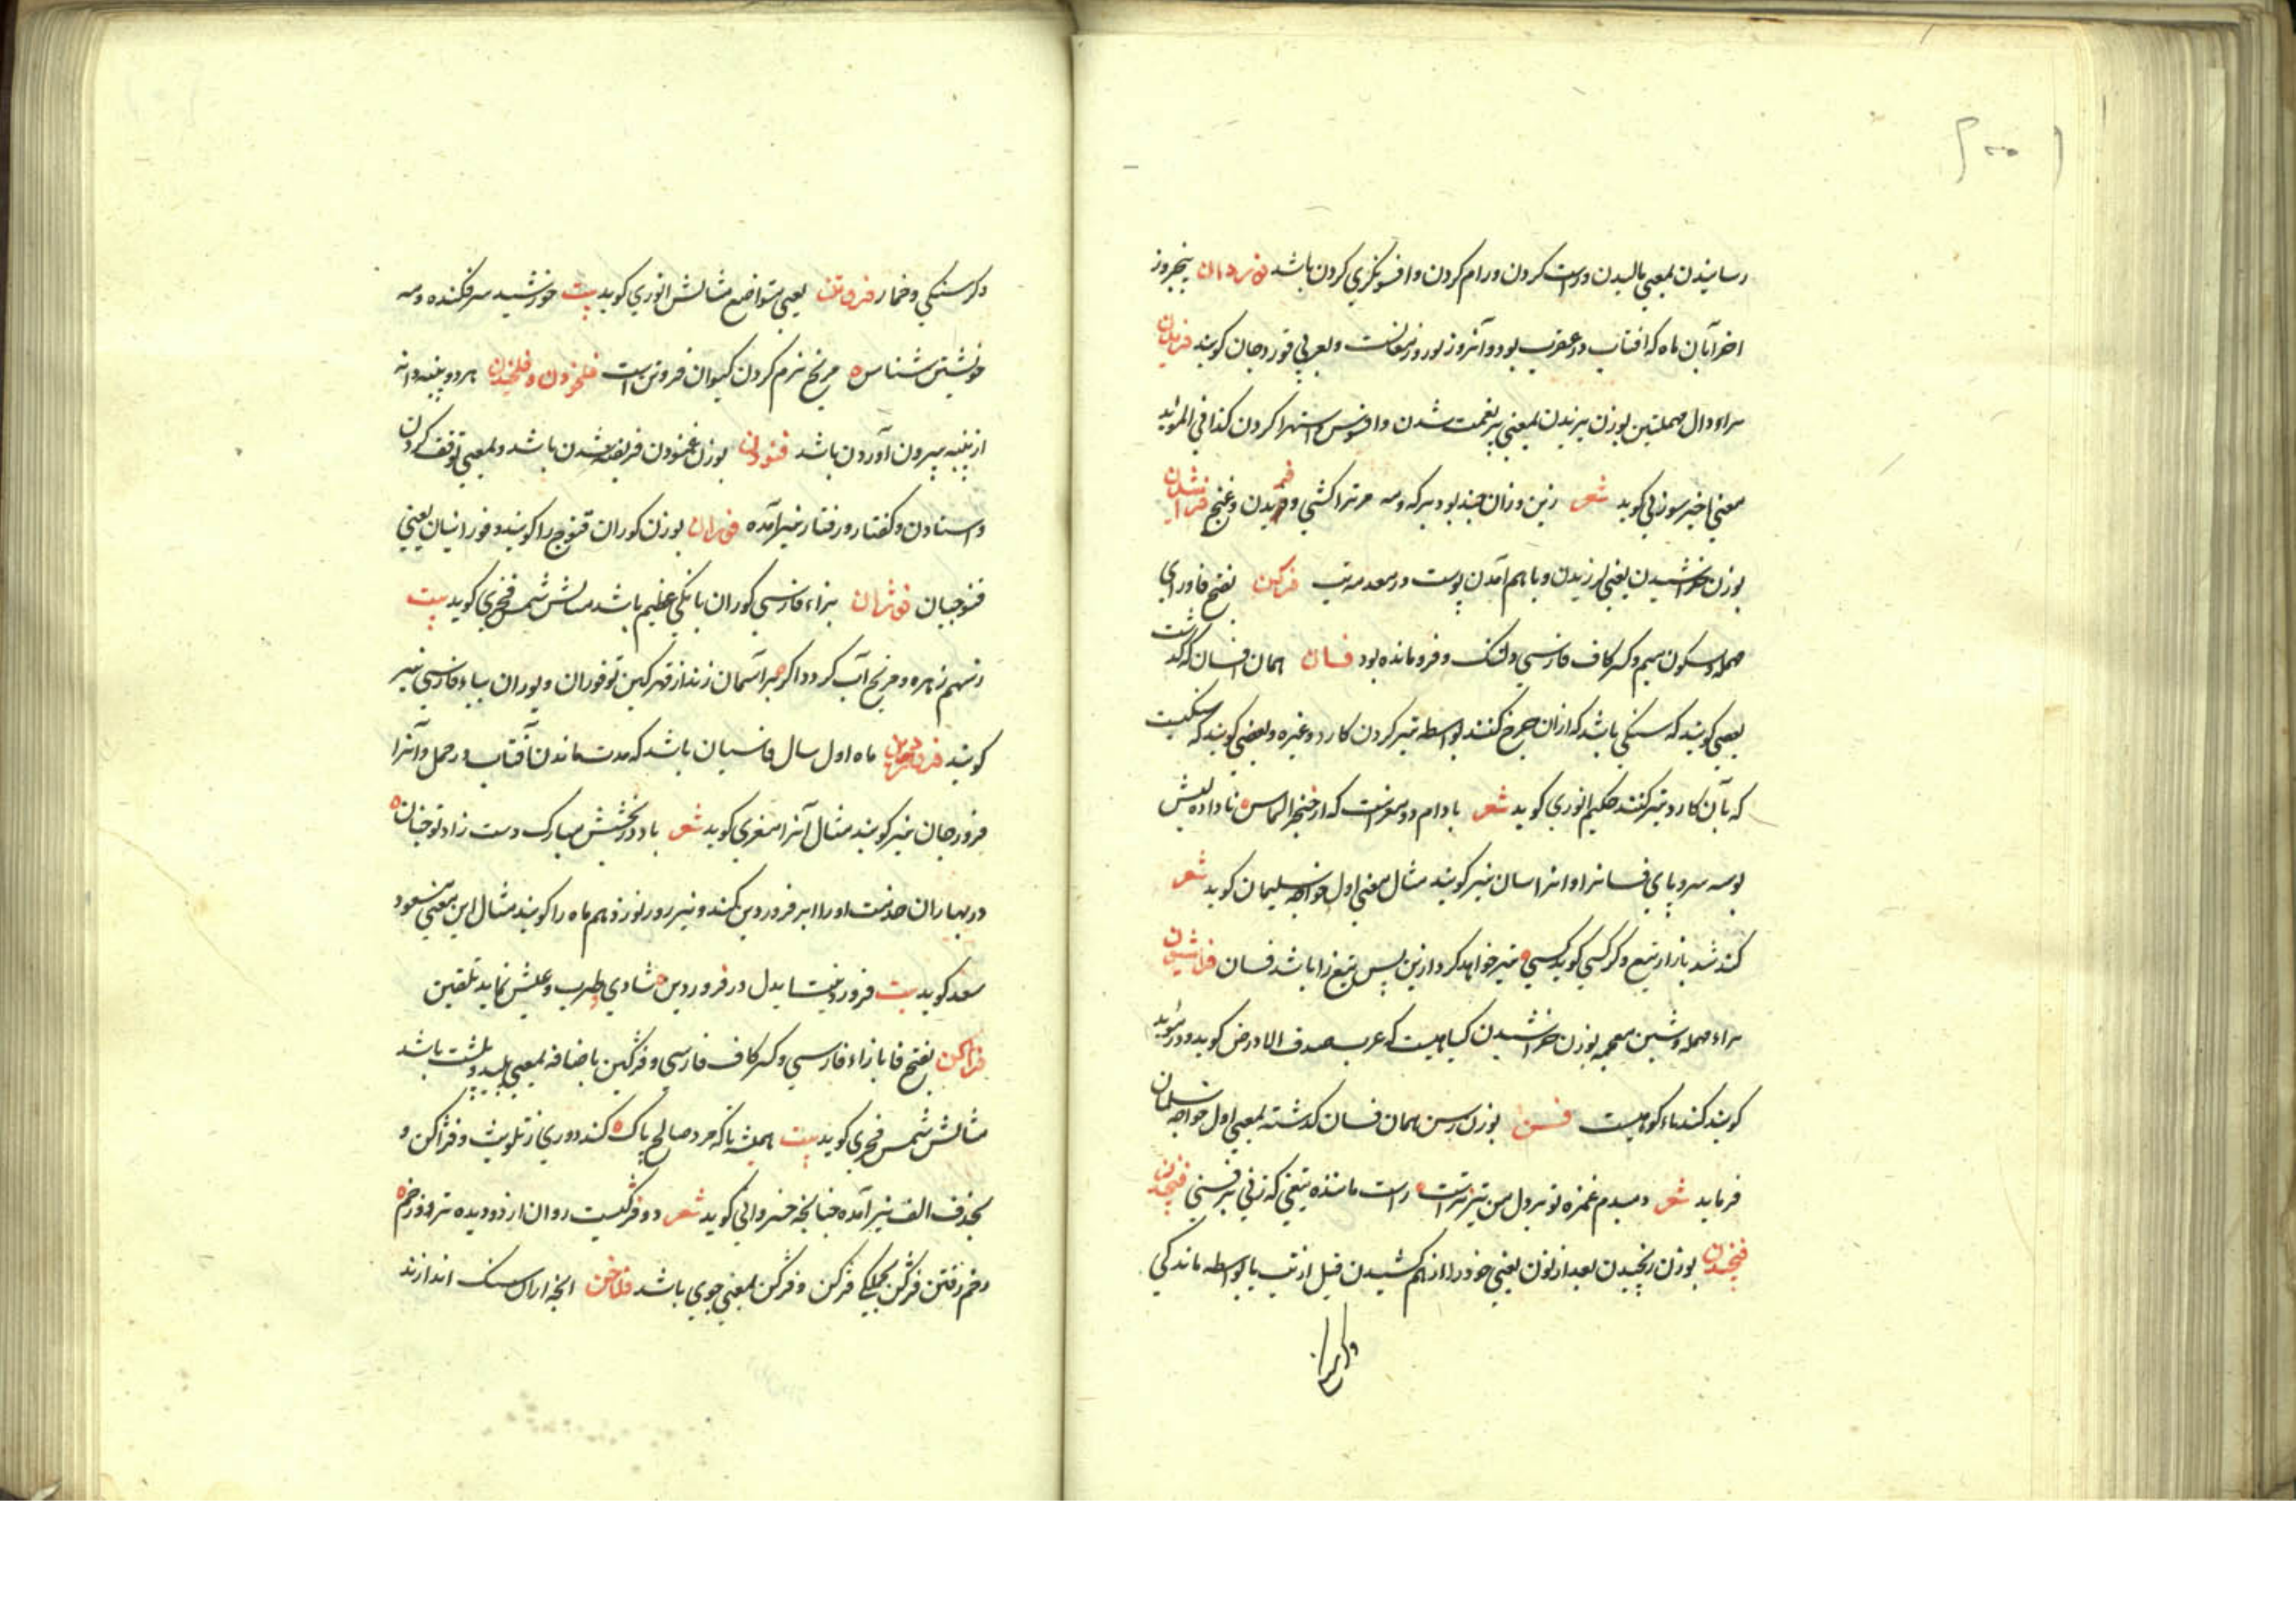 رسانیدن بمعنی مالیدن و راست کردن و رام کردن و افسونگری کردن باشد فوردان پنجروز
اخر آبان ماه که افتاب در عقرب بود و آنروز نوروز مغانست و بعربی فوردجان کویند فریدن
براء و دال مهملتین بوزن پریدن بمعنی بنعمت شدن و افسوس و استهزا کردن کذا فی الموید
معنی اخیر سوزنی کوید شعر زین و زان چند بود برکه و مه مر ترا کشی و فریدن و غنج فراشیدن
بوزن خراشیدن یعنی لرزیدن و با هم آمدن پوست در مقدمه تب فرکن بفتح فا و رای
مهمله و سکون میم و کسر کاف فارسی دلتنک و فرومانده بود فسان همان افسان که کذشت
بعضی کویند که سنکی باشد که از ان چرخ کنند بواسطه تیز کردن کارد و غیره و بعضی کویند که سنکیست
که بآن کارد تیز کنند حکیم انوری کوید شعر بادام دو مغزست که از خنجر الماس ناداده لبش
بوسه سر و پای فسانرا و انرا سان نیز کویند مثال معنی اول خواجه سلیمان کوید شعر
کند شد بازار تیغ و کرکسی کوید کسی تیز خواهد کرد ازین پس تیغ زا باشد فسان فراشیدن
براء مهمله و شین معجمه بوزن خراشیدن کیاهیست که عرب صدف الارض کوید و در موید
کویند کندناء کوهیست فسن بوزن رسن همان فسان کذشته بمعنی اول خواجه سلمان
فرماید شعر دمبدم غمزه تو بر دل من تیزترست راست ماننده تیغی که زنی بر فسنی فنجیدن
فنجیدن بوزن رنجیدن بعد از نون یعنی خود را از هم کشیدن قبل از تب یا بواسطه ماندکی
و کرسنکی و خمار فروتن یعنی متواضع مثالش انوری کوید بیت خورشید سرفکنده و مه
خویشتن شناس مریخ نرم کردن کیوان فروتن است فلخودن و فلخیدن هر دو پنبه دانه
از پنبه بیرون آوردن باشد فنودن بوزن غنودن فریفته شدن باشد و بمعنی توقف کردن
و استادن و کفتار و رفتار نیز آمده فوران بوزن کوران قنوج را کویند و فورانیان یعنی
قنوجیان فوژان بزاء فارسی کوران بانکی عظیم باشد مثالش شمس فخری کوید بیت
ز سهم زهره و مریخ آب کردد اکر بر آسمان زند از قهر کین تو فوژان و پوژان بباء فارسی نیز
کویند فروردین ماه اول سال فارسیان باشد که مدت ماندن آفتاب در حمل و آنرا
فرورجان نیز کویند مثال آنرا معزی کوید شعر باد در بخشش مبارک دست راد تو چنان
در بهاران خدمت او را ابر فروردین کند و نیز روز نوزدهم ماه را کویند مثال این معنی مسعود
سعد کوید بیت فروردینست ایدل در فروردین شادی و طرب و عیش نماید تلقین
فژاکن بفتح فا با زاء فارسی و کسر کاف فارسی و فژکین باضافه بمعنی پلید و پلشت باشد
مثالش شمس فخری کوید بیت همیشه تا که مرد صالح پاک کند دوری ز تلویث و فژاکن و
بحذف الف نیز آمده چنانچه خسروانی کوید شعر دو فرکنست روان از دو دیده بر دو رخم
رخم ز رفتن فرکن بجملکی فرکن و فرکن بمعنی جوی باشد فلاخن انچه ازان سنک اندازند